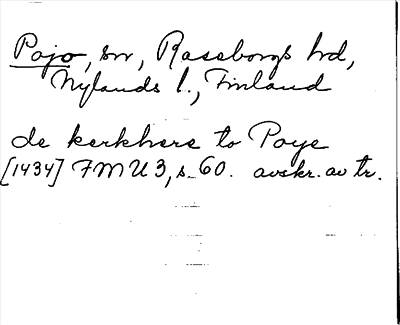 Pojo, sn, Raseborgs hd,
Nylands l., Finland
de kerkhere to Poye
[1434] FMU 3, s. 60. avskr. av tr.